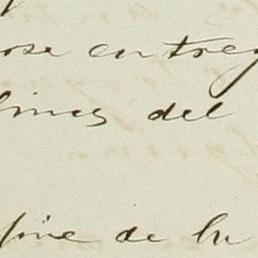 ose entreg
lines del
fine de lu